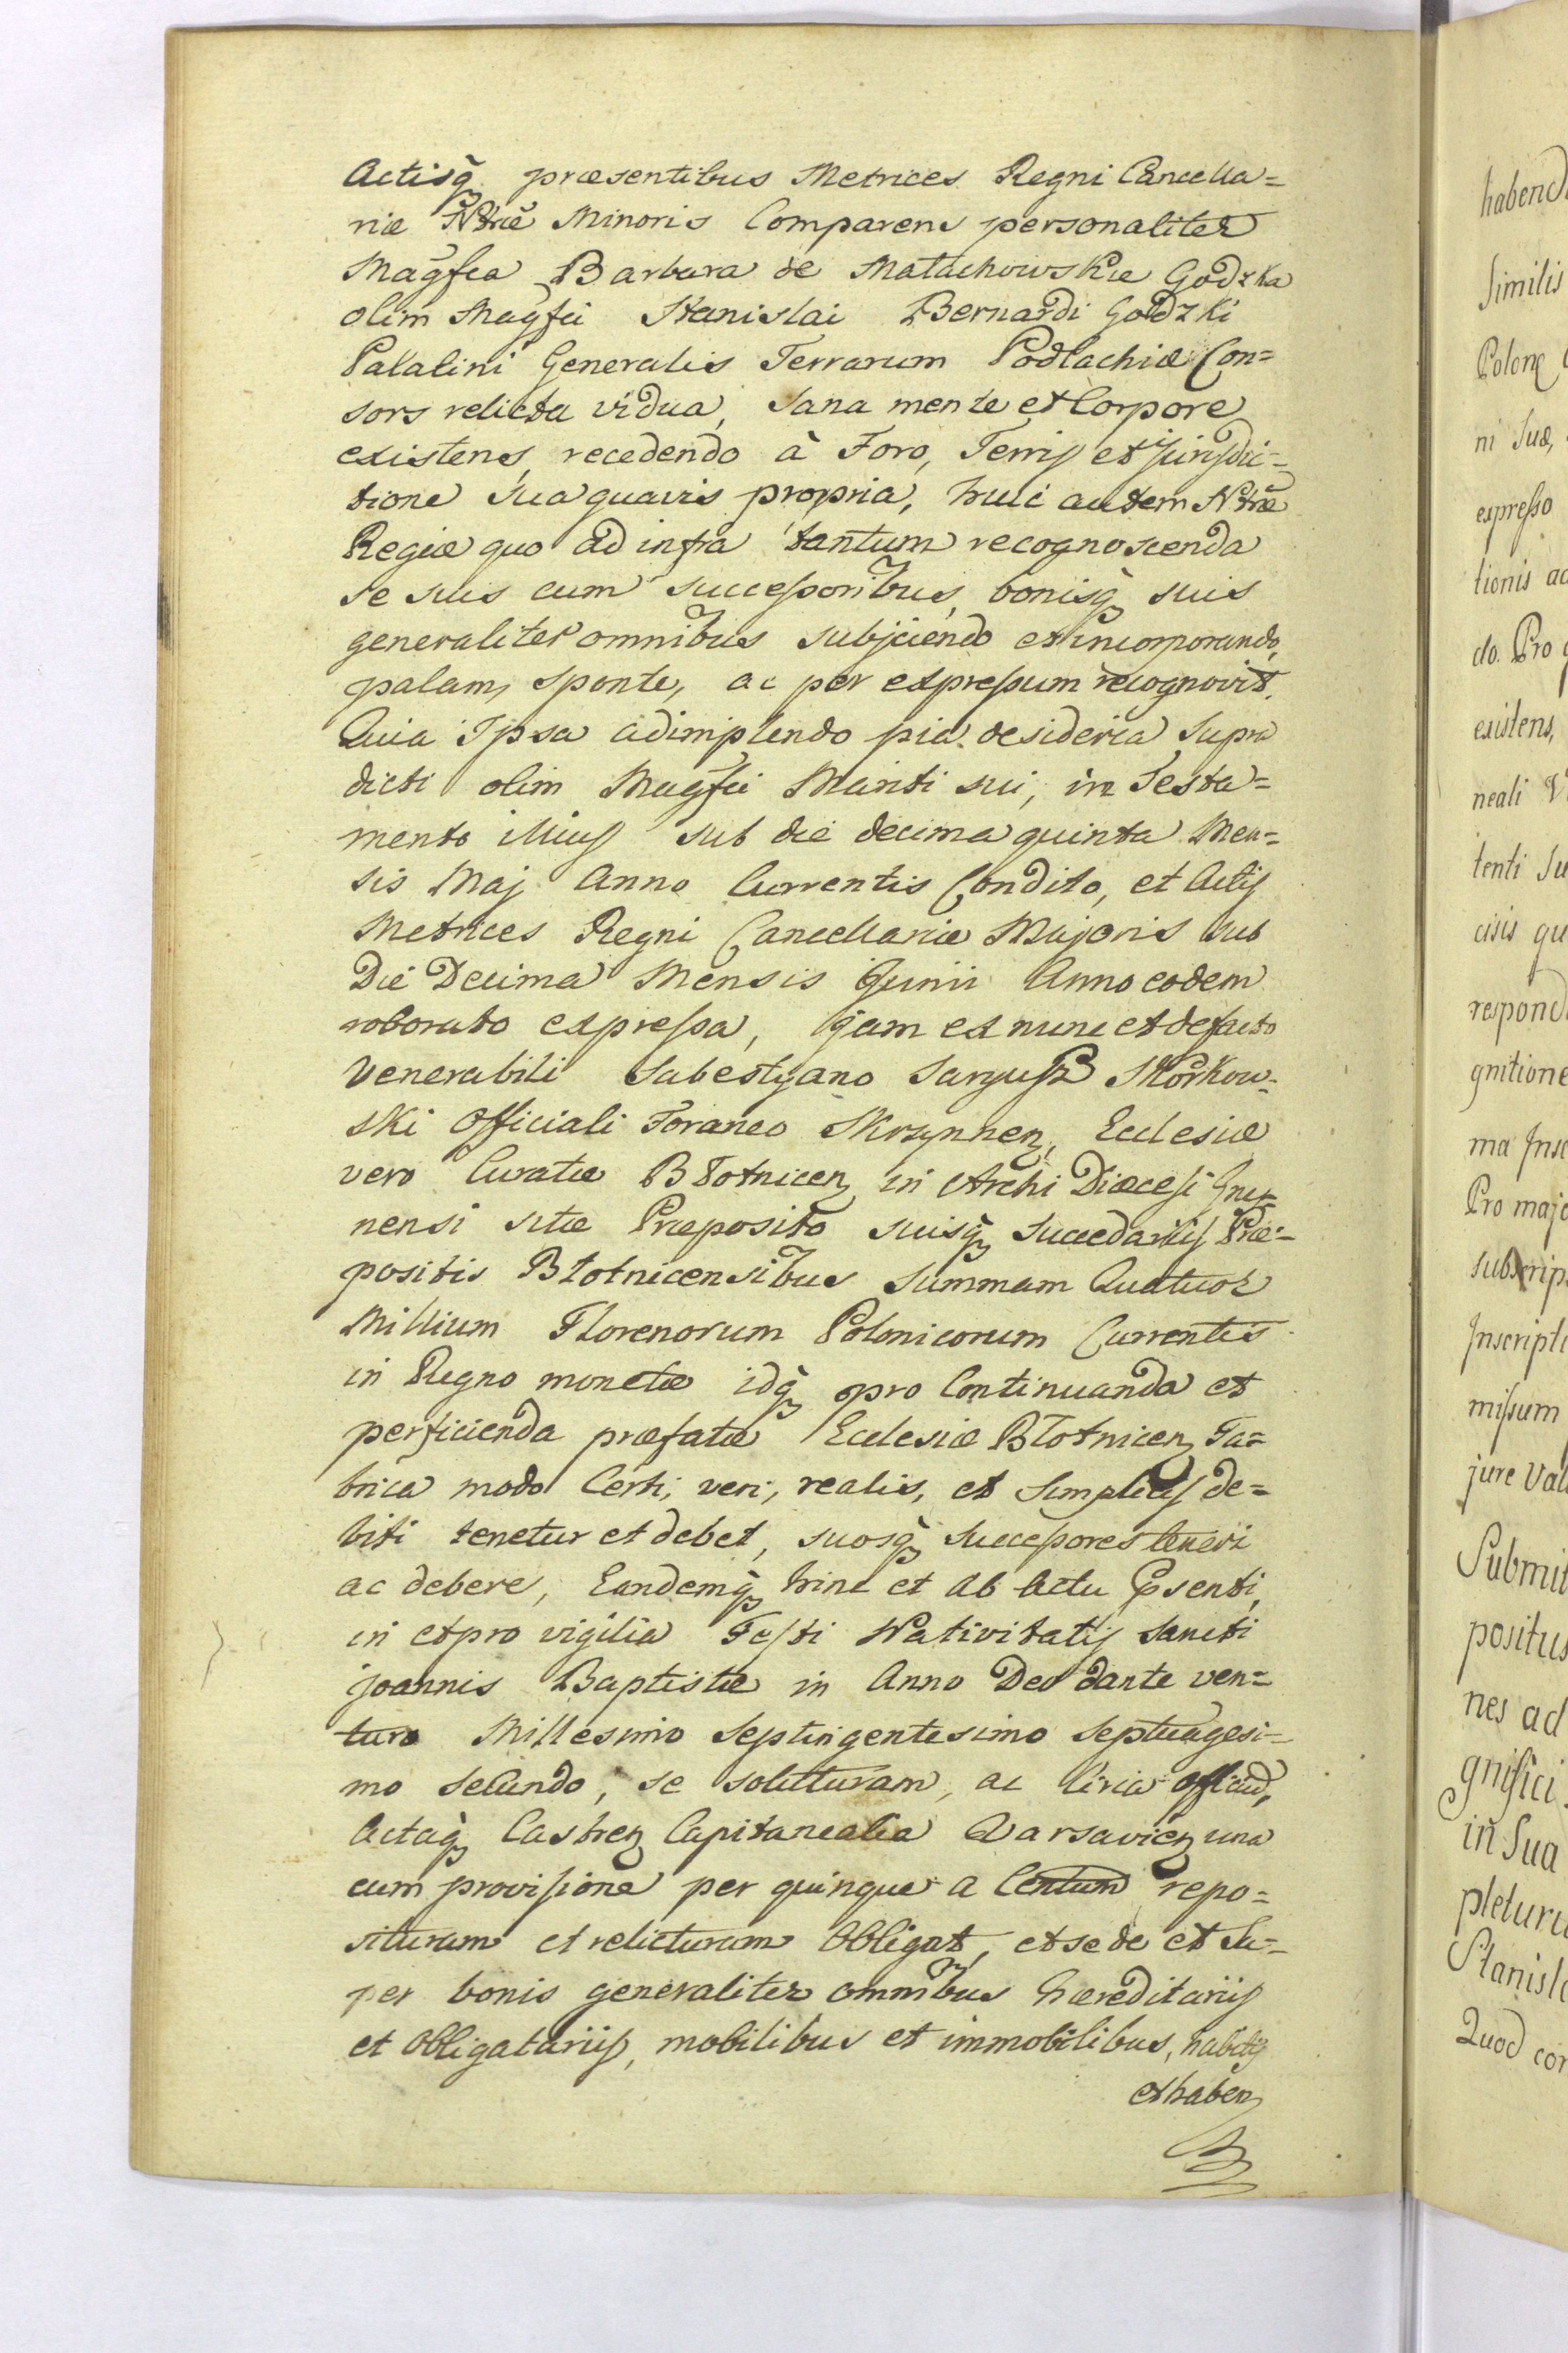 Actisq̃ præsentibus Metrices Regni Cancella=
riæ Ntræ Minoris Comparens personaliter
Magfca Barbara de Małachowskie Godzka
olim Magfci Stanislai Bernardi Godzki
Palatini Generalis Terrarum Podlachiæ Con=
sors relicta vidua, sana mente et Corpore
existens, recedendo à Foro, Terris et jurisdic=
tione sua quavis propria, huic autem Ntræ
Regiæ quo ad infra tantum recognoscenda
se suis cum successoribus, bonisq̃ suis
generaliter omnibus subjiciendo et incorporando,
palam, sponte, ac per expressum recognovit.
Quia Ipsa adimplendo pia desideria supra
dicti olim Magfci Mariti sui, in Testa=
mento illius sub die decima quinta Men=
sis Maj Anno Currentis Condito, et Actis
Metrices Regni Cancellariæ Majoris sub
Die Decima Mensis Junii Anno eodem
roborato expressa, jam ex nunc et de facto
Venerabili Sabestyano Skórkow=
ski Officiali Foraneo Skrzynnen, Ecclesiæ
vero Curatæ Błotnicen in Archi Diæcesi Gnez=
nensi sitæ Præposito suisq̃ succedaneis Præ=
positis Błotnicensibus Summam Quatuor
Millium Florenorum Polonicorum Currentis
in Regno monetæ idq̃ pro Continuanda et
perficienda præfatæ Ecclesiæ Błotnicen Fa=
brica modo Certi, veri, realis, et simplicis de=
biti tenetur et debet, suosq̃ successores teneri
ac debere, Eandemq̃ hinc et ab actu Psenti,
in et pro vigilia Festi Nativitatis Sancti
Joannis Baptistæ in Anno Deo dante ven=
turo Millesimo Septingentesimo Septuagesi=
mo Secundo, se soluturam, ac circa Officium,
Actaq̃ Castren Capitanealia Varsavien una
cum provisione per quinque a Centum repo=
situram et relicturam Obligat, et se de et su=
per bonis generaliter omnibus hæreditariis
et Obligatariis, mobilibus et immobilibus, habitis
et haben
habend
similis
Polon
ni Suæ,
expresso
tionis ac
do. Pro
existens,
neali V
tenti Su
cisis qu
respond
gnitione
ma Insc
Pro majo
subscrip
Inscripti
missum
jure Val
Submit
positus
nes ad
gnifici
in Sua
pletur
Stanisl
Quod cor